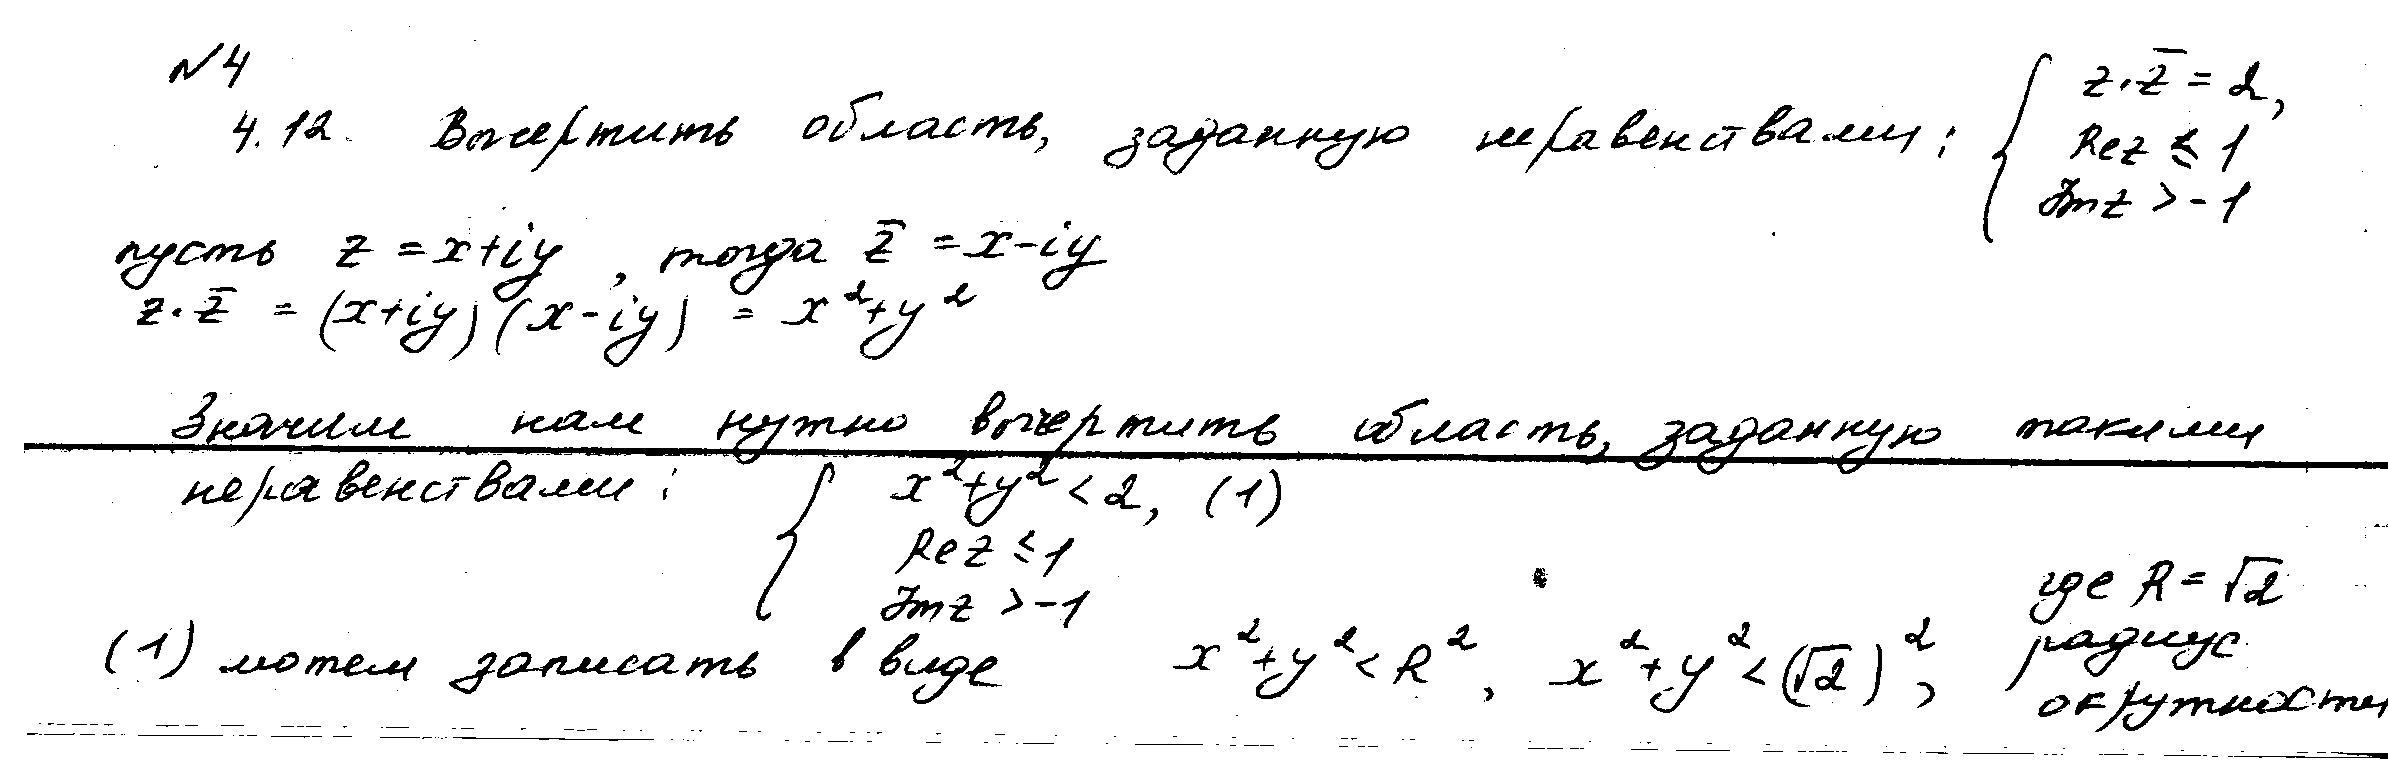 №4
4.12. Вычертить область, заданную неравенствами: { z·z̅ = 2,
Re z ≤ 1
Im z > -1
пусть z = x+iy, тогда z̅ = x-iy
z·z̅ = (x+iy)(x-iy) = x²+y²
Значим нам нужно вычертить область, заданную такими
неравенствами: { x²+y² < 2, (1)
Re z ≤ 1
Im z > -1
(1) можем записать в виде x²+y² < R², x²+y² < (√2)²,
где R = √2
радиус
окружности